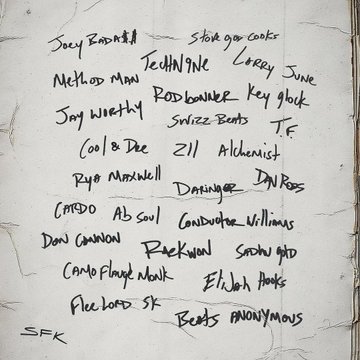 Joey BADA$$ Stove god cooks
TecHN9NE Larry June
Method Man Rod bonner Key glock
Jay Worthy Swizz Beats T.F
Cool & Dre 211 Alchemist
Rya Maxwell Daringer Dan Ross
CARDO Ab Soul Conductor Williams
Don Cannon RaeKwon Sadhu gold
Camoflauge Monk Elijah Hooks
Flee Lord SK
Beats ANONYMOUS
SFK